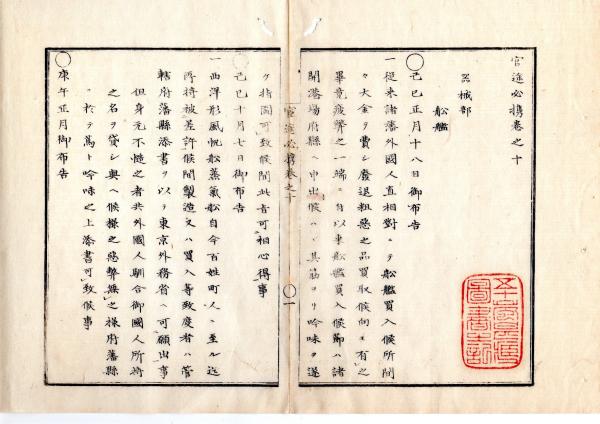 官途必携巻之十
器械部
舩艦
〇己巳正月十八日御布告
一従来諸藩外國人直相對ニテ舩艦買入候所間
々大金ヲ費シ廢退粗惡之品買取候向モ有之
畢竟疲弊之一端ニ付以来舩艦買入候節ハ諸
開港場府縣ヘ申出候ハヽ其筋ヨリ吟味ヲ遂
官途必携巻之十
〇一
ケ指圖可致候間此旨可相心得事
〇己巳十月七日御布告
一西洋形風帆舩蒸氣舩自今百姓町人ニ至ル迄
所持被差許候間製造又ハ買入等致度者ハ管
轄府藩縣添書ヲ以テ東京外務省ヘ可願出事
但身元不慥之者共外國人馴合御國人所持
之名ヲ貸シ與ヘ候様之惡弊無之様府藩縣
ニ於テ篤ト吟味之上添書可致候事
〇庚午正月御布告